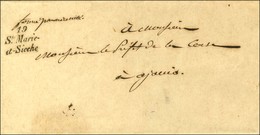 19
Ste Marie-
et-Sicche
à Monsieur
Monsieur le Préfet de la Corse
à ajaccio